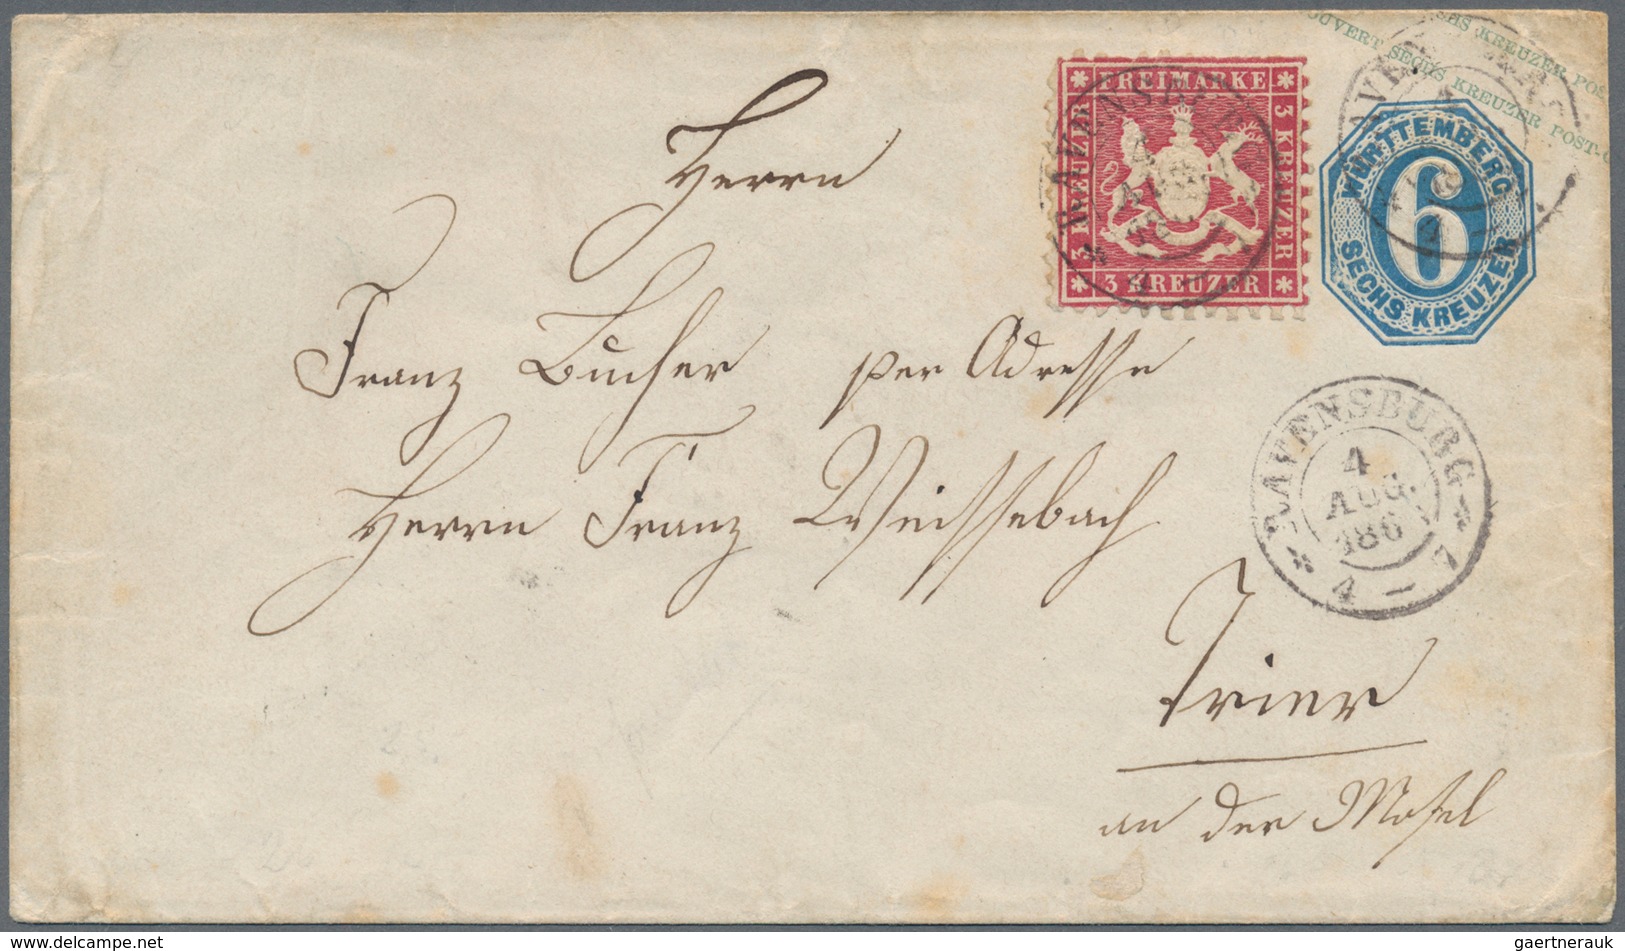 COUVERT SECHS KREUZER POST-C
SECHS KREUZER POS
FREIMARKE
3 KREUZER
3 KREUZER
3 KREUZER
RAVENSBURG
4
AUG.
4 - 7
WÜRTTEMBERG
6
SECHS KREUZER
RAVENSBURG
4
AUG.
186
4 - 7
Herrn
Franz Bucher per Adresse
Herrn Franz Weissebach
Trier
an der Mosel
www.delcampe.net
gaertnerauk